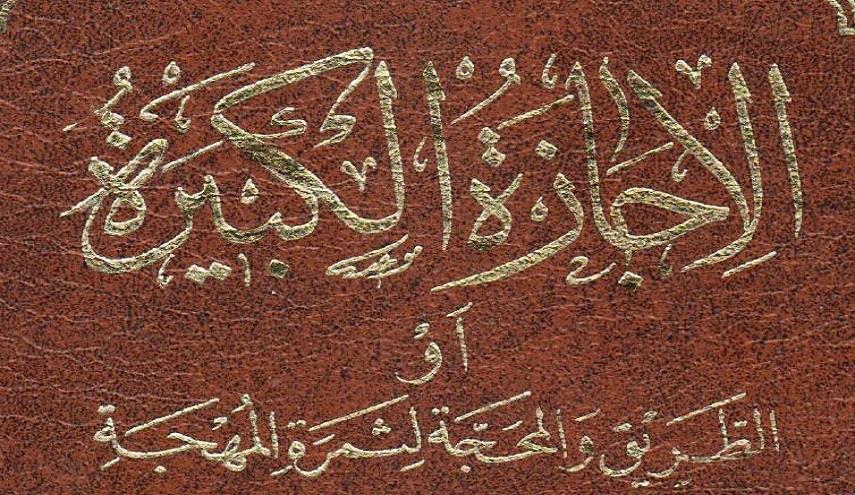 الإجازة الكبيرة
أَوْ
الطَّرِيقُ وَالمَحَجَّة لِثَمَرَةِ المُهْجَةِ